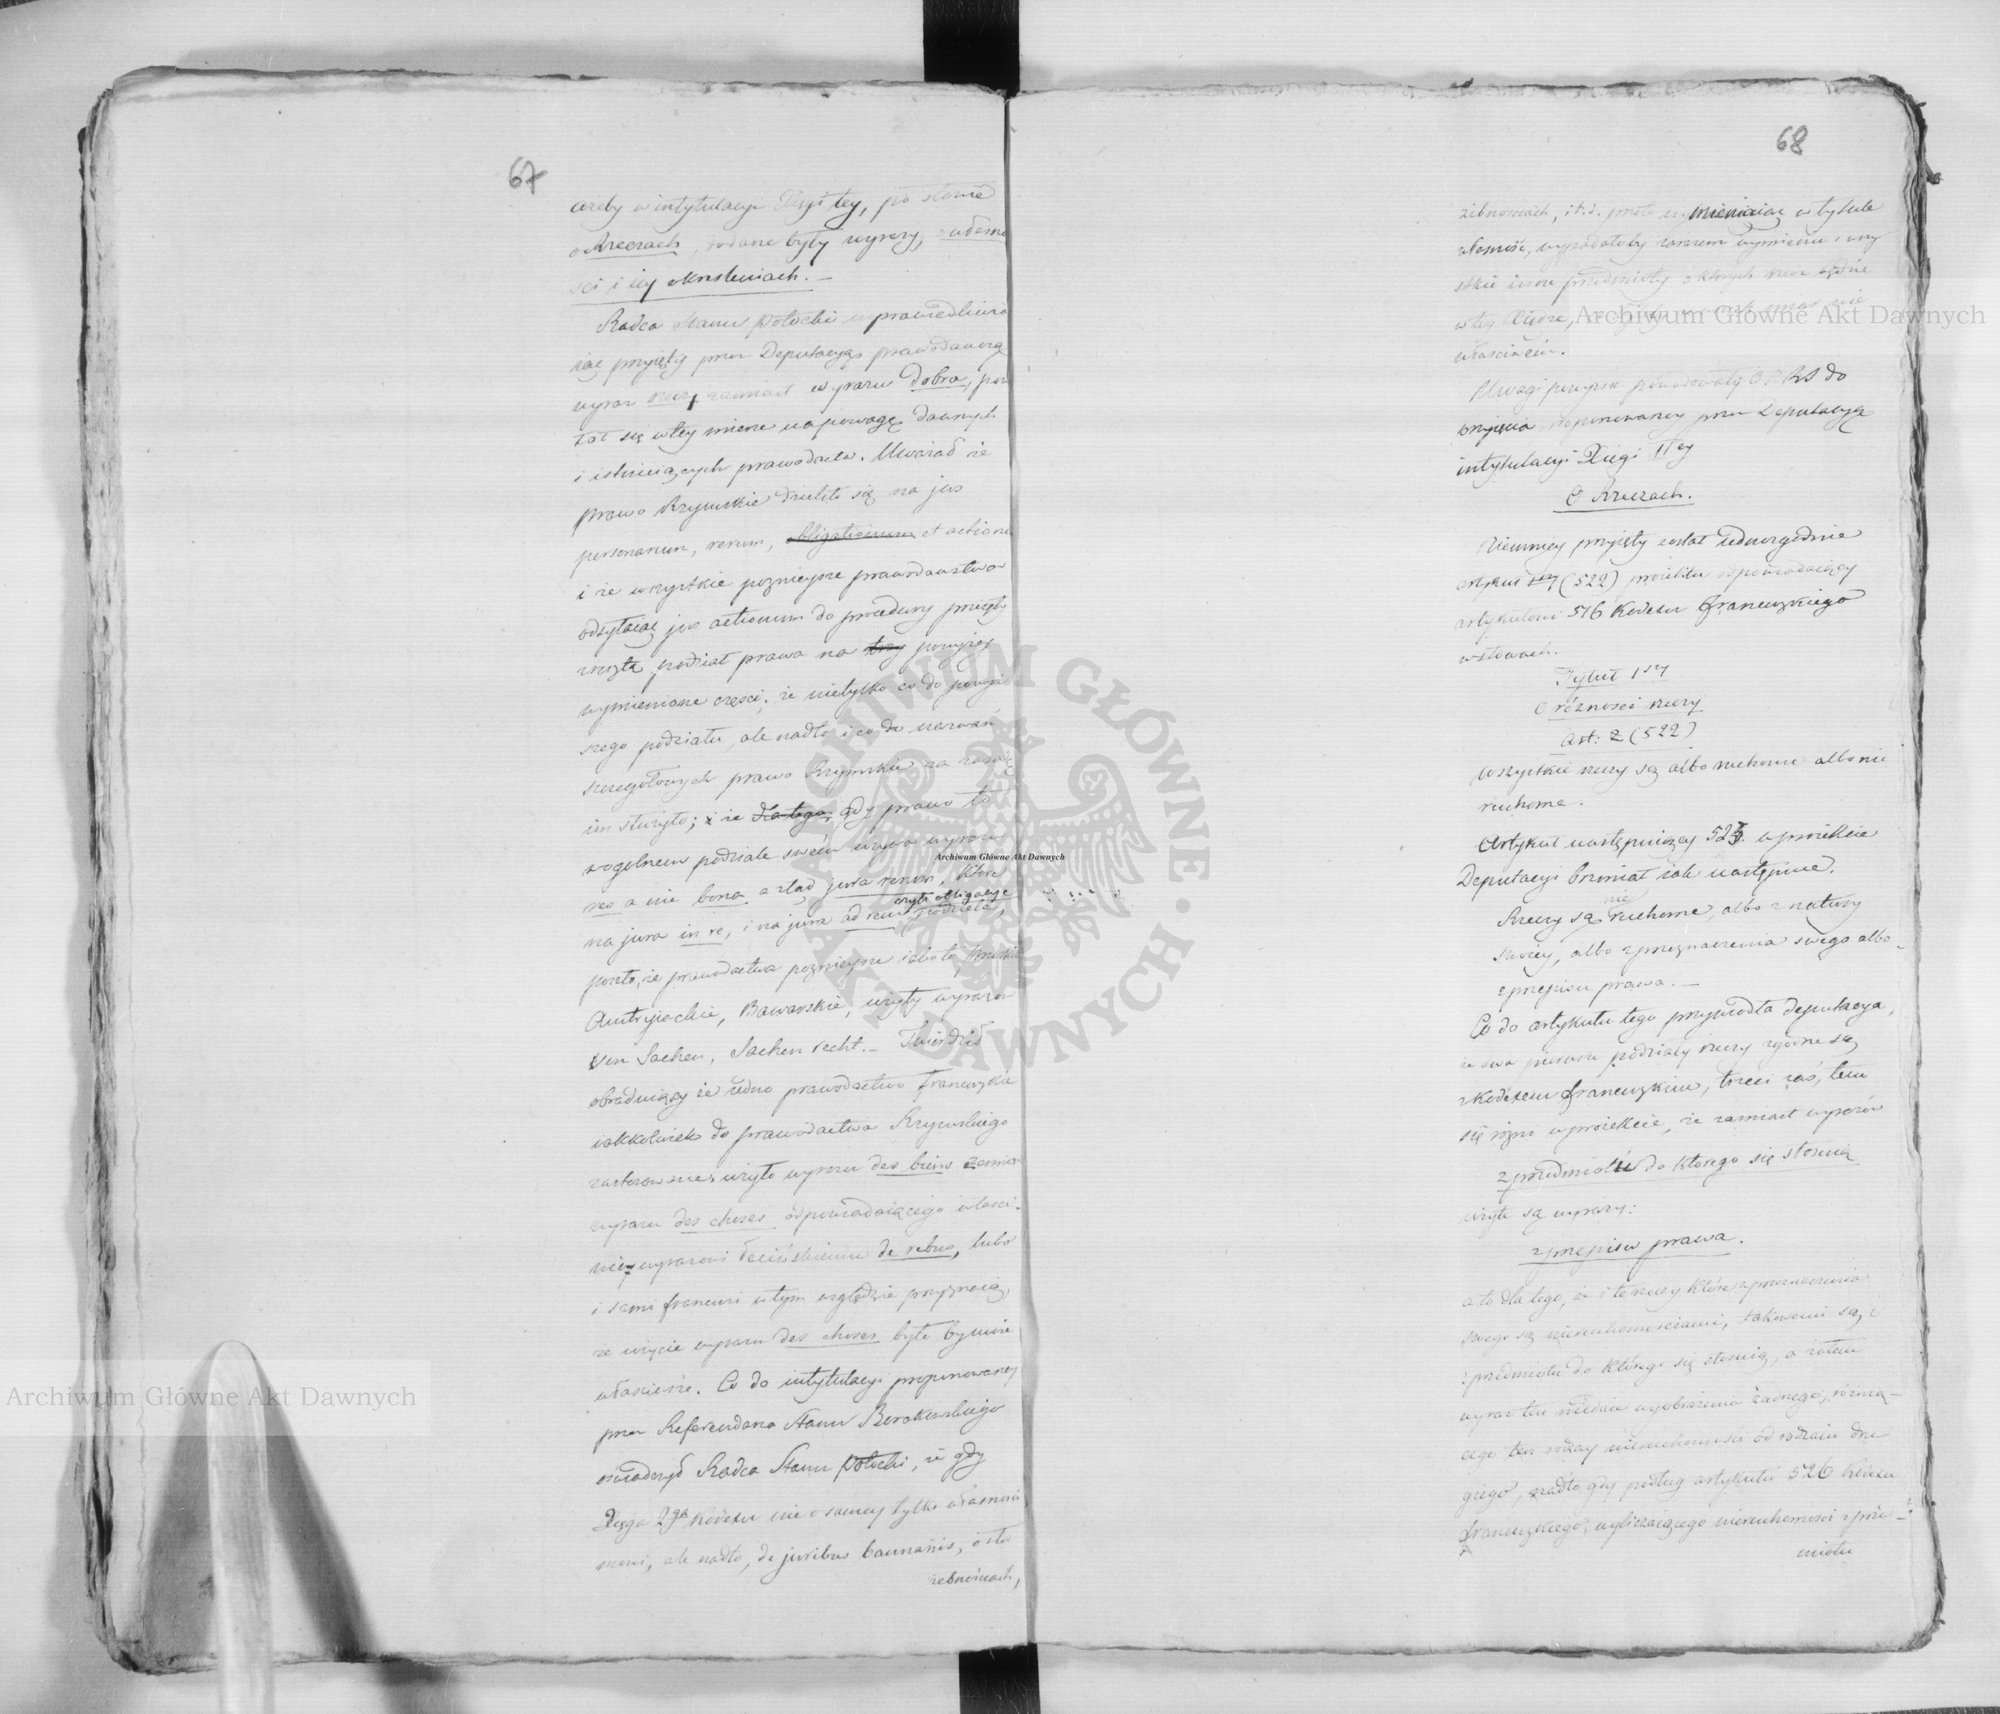 67
ażeby w intytulacyi Xięgi tey, po słowie
o Rzeczach, dodane były wyrazy, o własno
ści i iey określeniach. —
Radca Stanu Potocki usprawiedliwia
iąc przyięty przez Deputacyą prawodawczą
wyraz rzeczy zamiast wyrazu dobra, powo
łał się w tey mierze na powagę dawnych
i istnieiących prawodactw. Uważał że
prawo Rzymskie dzieliło się na jus
personarum, rerum, obligationum et actionum
i że wszystkie poznieysze prawodawstwa
odsyłaiąc jus actionum do procedury przyięły
zresztą podział prawa na trzy powyżey
wymienione części; że nietylko co do powyż
szego podziału, ale nadto i co do nazwań
szczegółowych prawo Rzymskie za zasadę
im służyło; i że dla tego, gdy prawo to
w ogólnem podziale swoim używa wyrazu
res a nie bona, a ztąd jura rerum, które
czyli obligacye
na jura in re, i na jura ad rem podziela,
przeto, że prawodactwa poznieysze iako to, Pruskie
Austryiackie, Bawarskie, użyły wyrazów
von Sachen, Sachen recht. — Twierdził
obraduiący że iedno prawodactwo francuzkie
iakkolwiek do prawodactwa Rzymskiego
zastosowane, użyło wyrazu des biens zamiast
wyrazu des choses odpowiadaiącego właści-
wiey wyrazowi łacińskiemu de rebus, lubo
i sami francuzi w tym względzie przyznaią,
że użycie wyrazu des choses było by może
właściwsze. Co do intytulacyi proponowaney
przez Referendarza Stanu Borakowskiego
oświadczył Radca Stanu Potocki, że gdy
Xięga 2ga Kodexu nie o samey tylko własności
mówi, ale nadto, de juribus
żebnościach,
68
żebnościach, i t. d. przeto wymieniaiąc w tytule
własność, wypadałoby zarazem wymienić i wszy
stkie inne przedmioty o których mowa będzie
w tey Xiędze,
właściwem.
Uwagi powyższe powodowały do
przyięcia proponowaney przez Deputacyą
intytulacyi Xięgi IIey
O Rzeczach.
Niemniey przyięty został iednozgodnie
artykuł 1szy (522) proiektu odpowiadaiący
artykułowi 516 Kodexu francuzkiego
w słowach.
Tytuł 1szy
O różności rzeczy
Art: 2 (522)
Wszystkie rzeczy są albo ruchome albo nie
ruchome.
Artykuł następuiący 523. w proiekcie
Deputacyi brzmiał iak następuie.
nie
Rzeczy są ruchome, albo z natury
swoiey, albo z przeznaczenia swego albo
z przepisu prawa. —
Co do artykułu tego przywiodła deputacya,
że dwa pierwsze podziały rzeczy zgodne są
z Kodexem francuzkim, trzeci zaś, tem
się różni w proiekcie, że zamiast wyrazów
z przedmiotu do którego się stosuią
użyte są wyrazy:
z przepisu prawa.
a to dla tego, że i te rzeczy które z przeznaczenia
swego są nieruchomościami, takowemi są z
przedmiotu do którego się stosuią, a zatem
wyraz ten niedaie wyobrażenia żadnego, różnią-
cego ten rodzay nieruchomości od rodzaiu dru
giego, nadto gdy podług artykułu 526 Kodexu
francuzkiego, wyliczaiącego nieruchomości z przed-
miotu
Archiwum Główne Akt Dawnych
Archiwum Główne Akt Dawnych
Archiwum Główne Akt Dawnych
ARCHIWUM GŁÓWNE AKT DAWNYCH